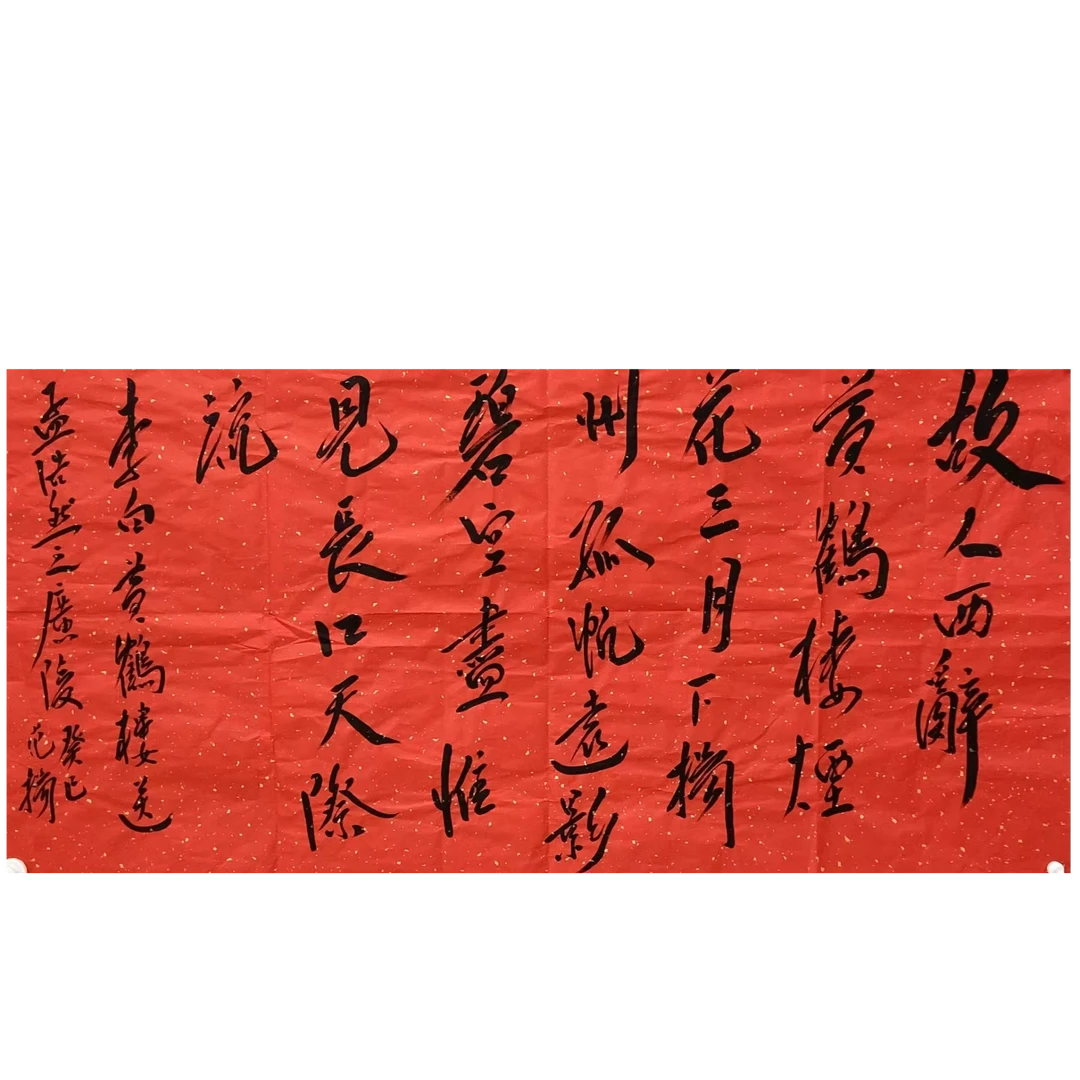 故人西辭
黃鶴樓煙
花三月下揚
州孤帆遠影
碧空盡惟
見長江天際
流
李白黃鶴樓送
孟浩然之廣陵
癸巳
范揚